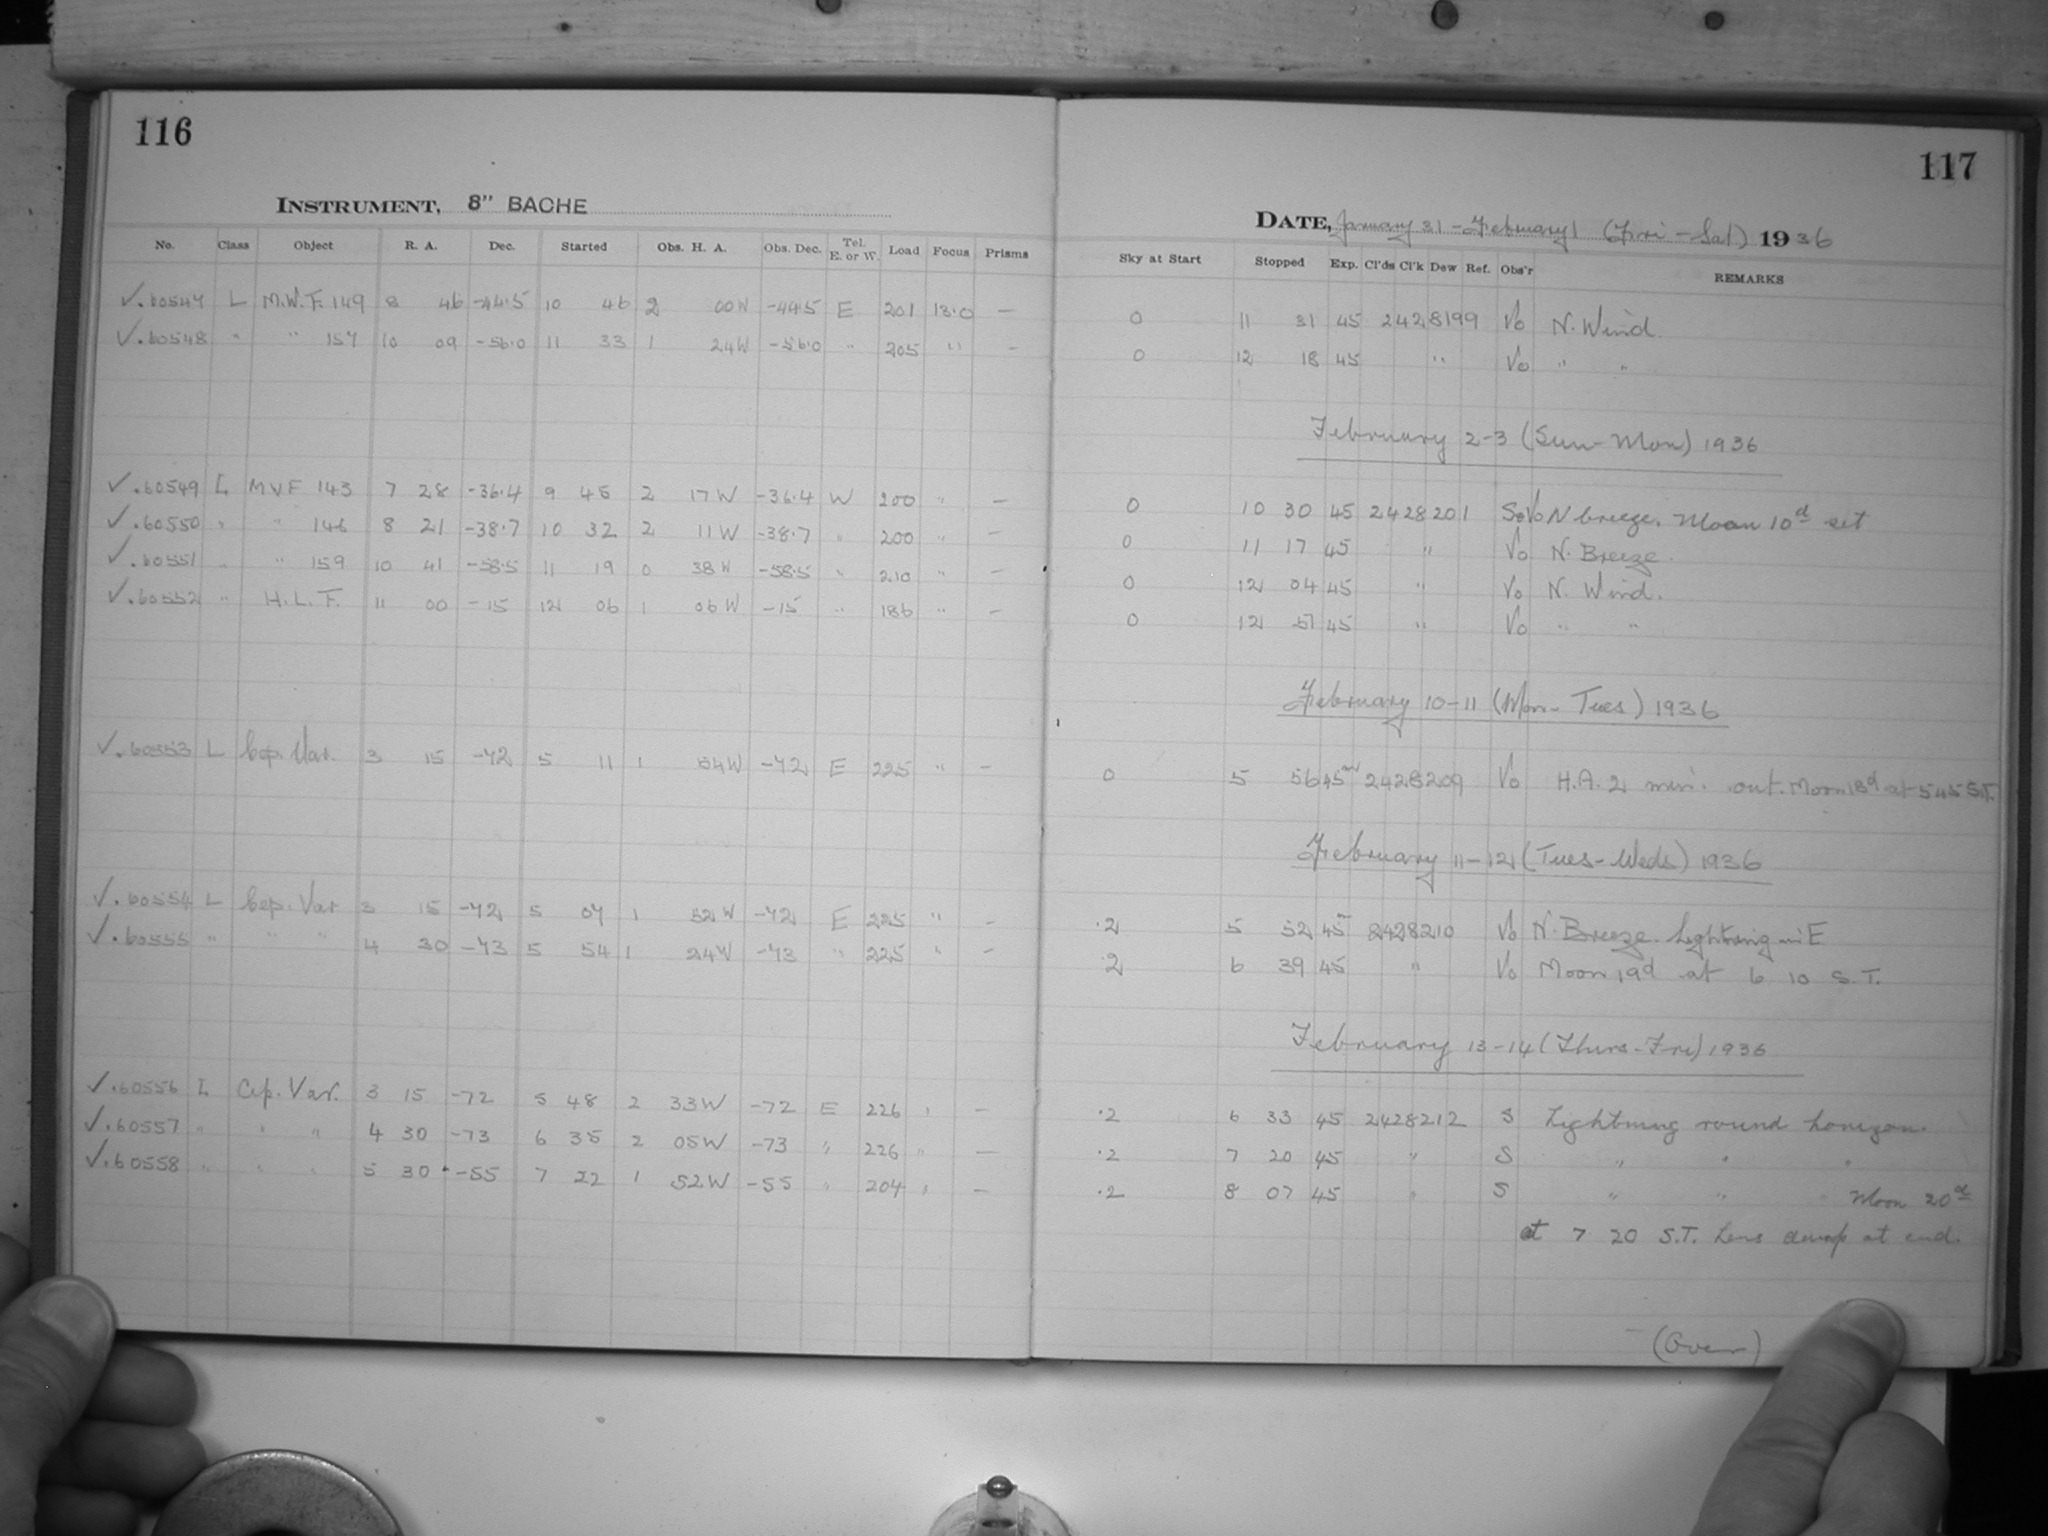 116
INSTRUMENT, 8" BACHE
No. Class Object R. A. Dec. Started Obs. H. A. Obs. Dec. Tel. E. or W. Load Focus Prisms
√.60547 L M.W.F. 149 8 46 -44.5 10 46 2 00W -44.5 E 201 13.0 —
√.60548 " " 157 10 09 -56.0 11 33 1 24W -56.0 " 205 " —
√.60549 L MVF 143 7 28 -36.4 9 45 2 17W -36.4 W 200 " —
√.60550 " " 146 8 21 -38.7 10 32 2 11W -38.7 " 200 " —
√.60551 " " 159 10 41 -58.5 11 19 0 38W -58.5 " 210 " —
√.60552 " H.L.F. 11 00 -15 12 06 1 06W -15 " 186 " —
√.60553 L Cep. Var. 3 15 -72 5 11 1 54W -72 E 225 " —
√.60554 L Cep. Var 3 15 -72 5 07 1 52W -72 E 225 " —
√.60555 " " " 4 30 -73 5 54 1 24W -73 " 225 " —
√.60556 L Cep. Var. 3 15 -72 5 48 2 33W -72 E 226 " —
√.60557 " " " 4 30 -73 6 35 2 05W -73 " 226 " —
√.60558 " " " 5 30 -55 7 22 1 52W -55 " 204 " —
117
DATE, January 31 - February 1 (Fri - Sat) 1936
Sky at Start Stopped Exp. Cl'ds Cl'k Dew Ref. Obs'r REMARKS
0 11 31 45 2428199 Vo N. Wind.
0 12 18 45 " Vo " "
February 2-3 (Sun-Mon) 1936
0 10 30 45 2428201 S&Vo N breeze. Moon 10d set
0 11 17 45 " Vo N. Breeze.
0 12 04 45 " Vo N. Wind.
0 12 51 45 " Vo " "
February 10-11 (Mon-Tues) 1936
0 5 56 45 2428209 Vo H.A. 2 min. out. Moon 18d at 5 45 S.T.
February 11-12 (Tues-Weds) 1936
.2 5 52 45 2428210 Vo N. Breeze. Lightning in E
.2 6 39 45 " Vo Moon 19d at 6 10 S.T.
February 13-14 (Thurs-Fri) 1936
.2 6 33 45 2428212 S Lightning round horizon.
.2 7 20 45 " S " " "
.2 8 07 45 " S " " " Moon 20d
at 7 20 S.T. Lens damp at end.
(Over)